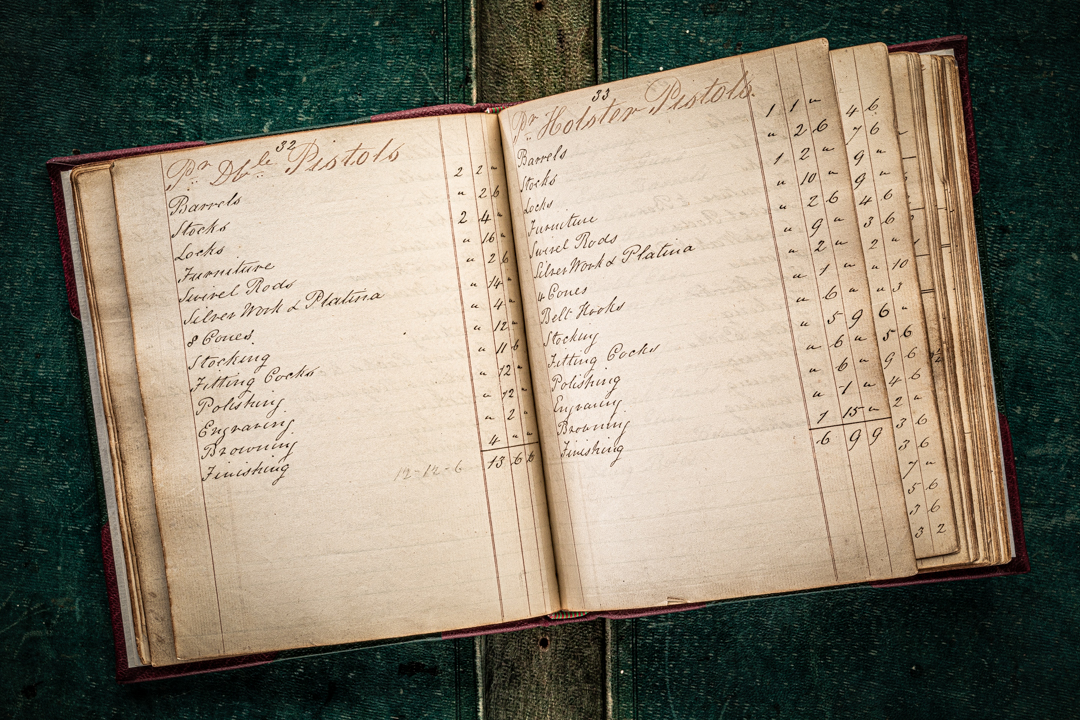 32
Pr Dble Pistols
Barrels 2 2 "
Stocks " 2 6
Locks 2 4 "
Furniture " 16 "
Swivel Rods " 2 6
Silver Work & Platina " 14 "
8 Cones " 4 "
Stocking " 12 "
Fitting Cocks " 11 6
Polishing " 12 "
Engraving " 12 "
Browning " 2 "
Finishing 4 " "
12-14-6 13 6 6
33
Pr Holster Pistols
Barrels 1 1 "
Stocks " 2 6
Locks 1 2 "
Furniture " 10 "
Swivel Rods " 2 6
Silver Work & Platina " 9 "
4 Cones " 2 "
Belt Hooks " 1 "
Stocking " 6 "
Fitting Cocks " 5 9
Polishing " 6 "
Engraving " 6 "
Browning " 1 "
Finishing 1 15 "
6 9 9
4 6
7 6
9 "
9 "
4 6
3 6
2 "
" 10
" 3
6 "
5 6
9 6
4 6
2 "
3 6
3 6
7 "
5 6
3 6
3 2